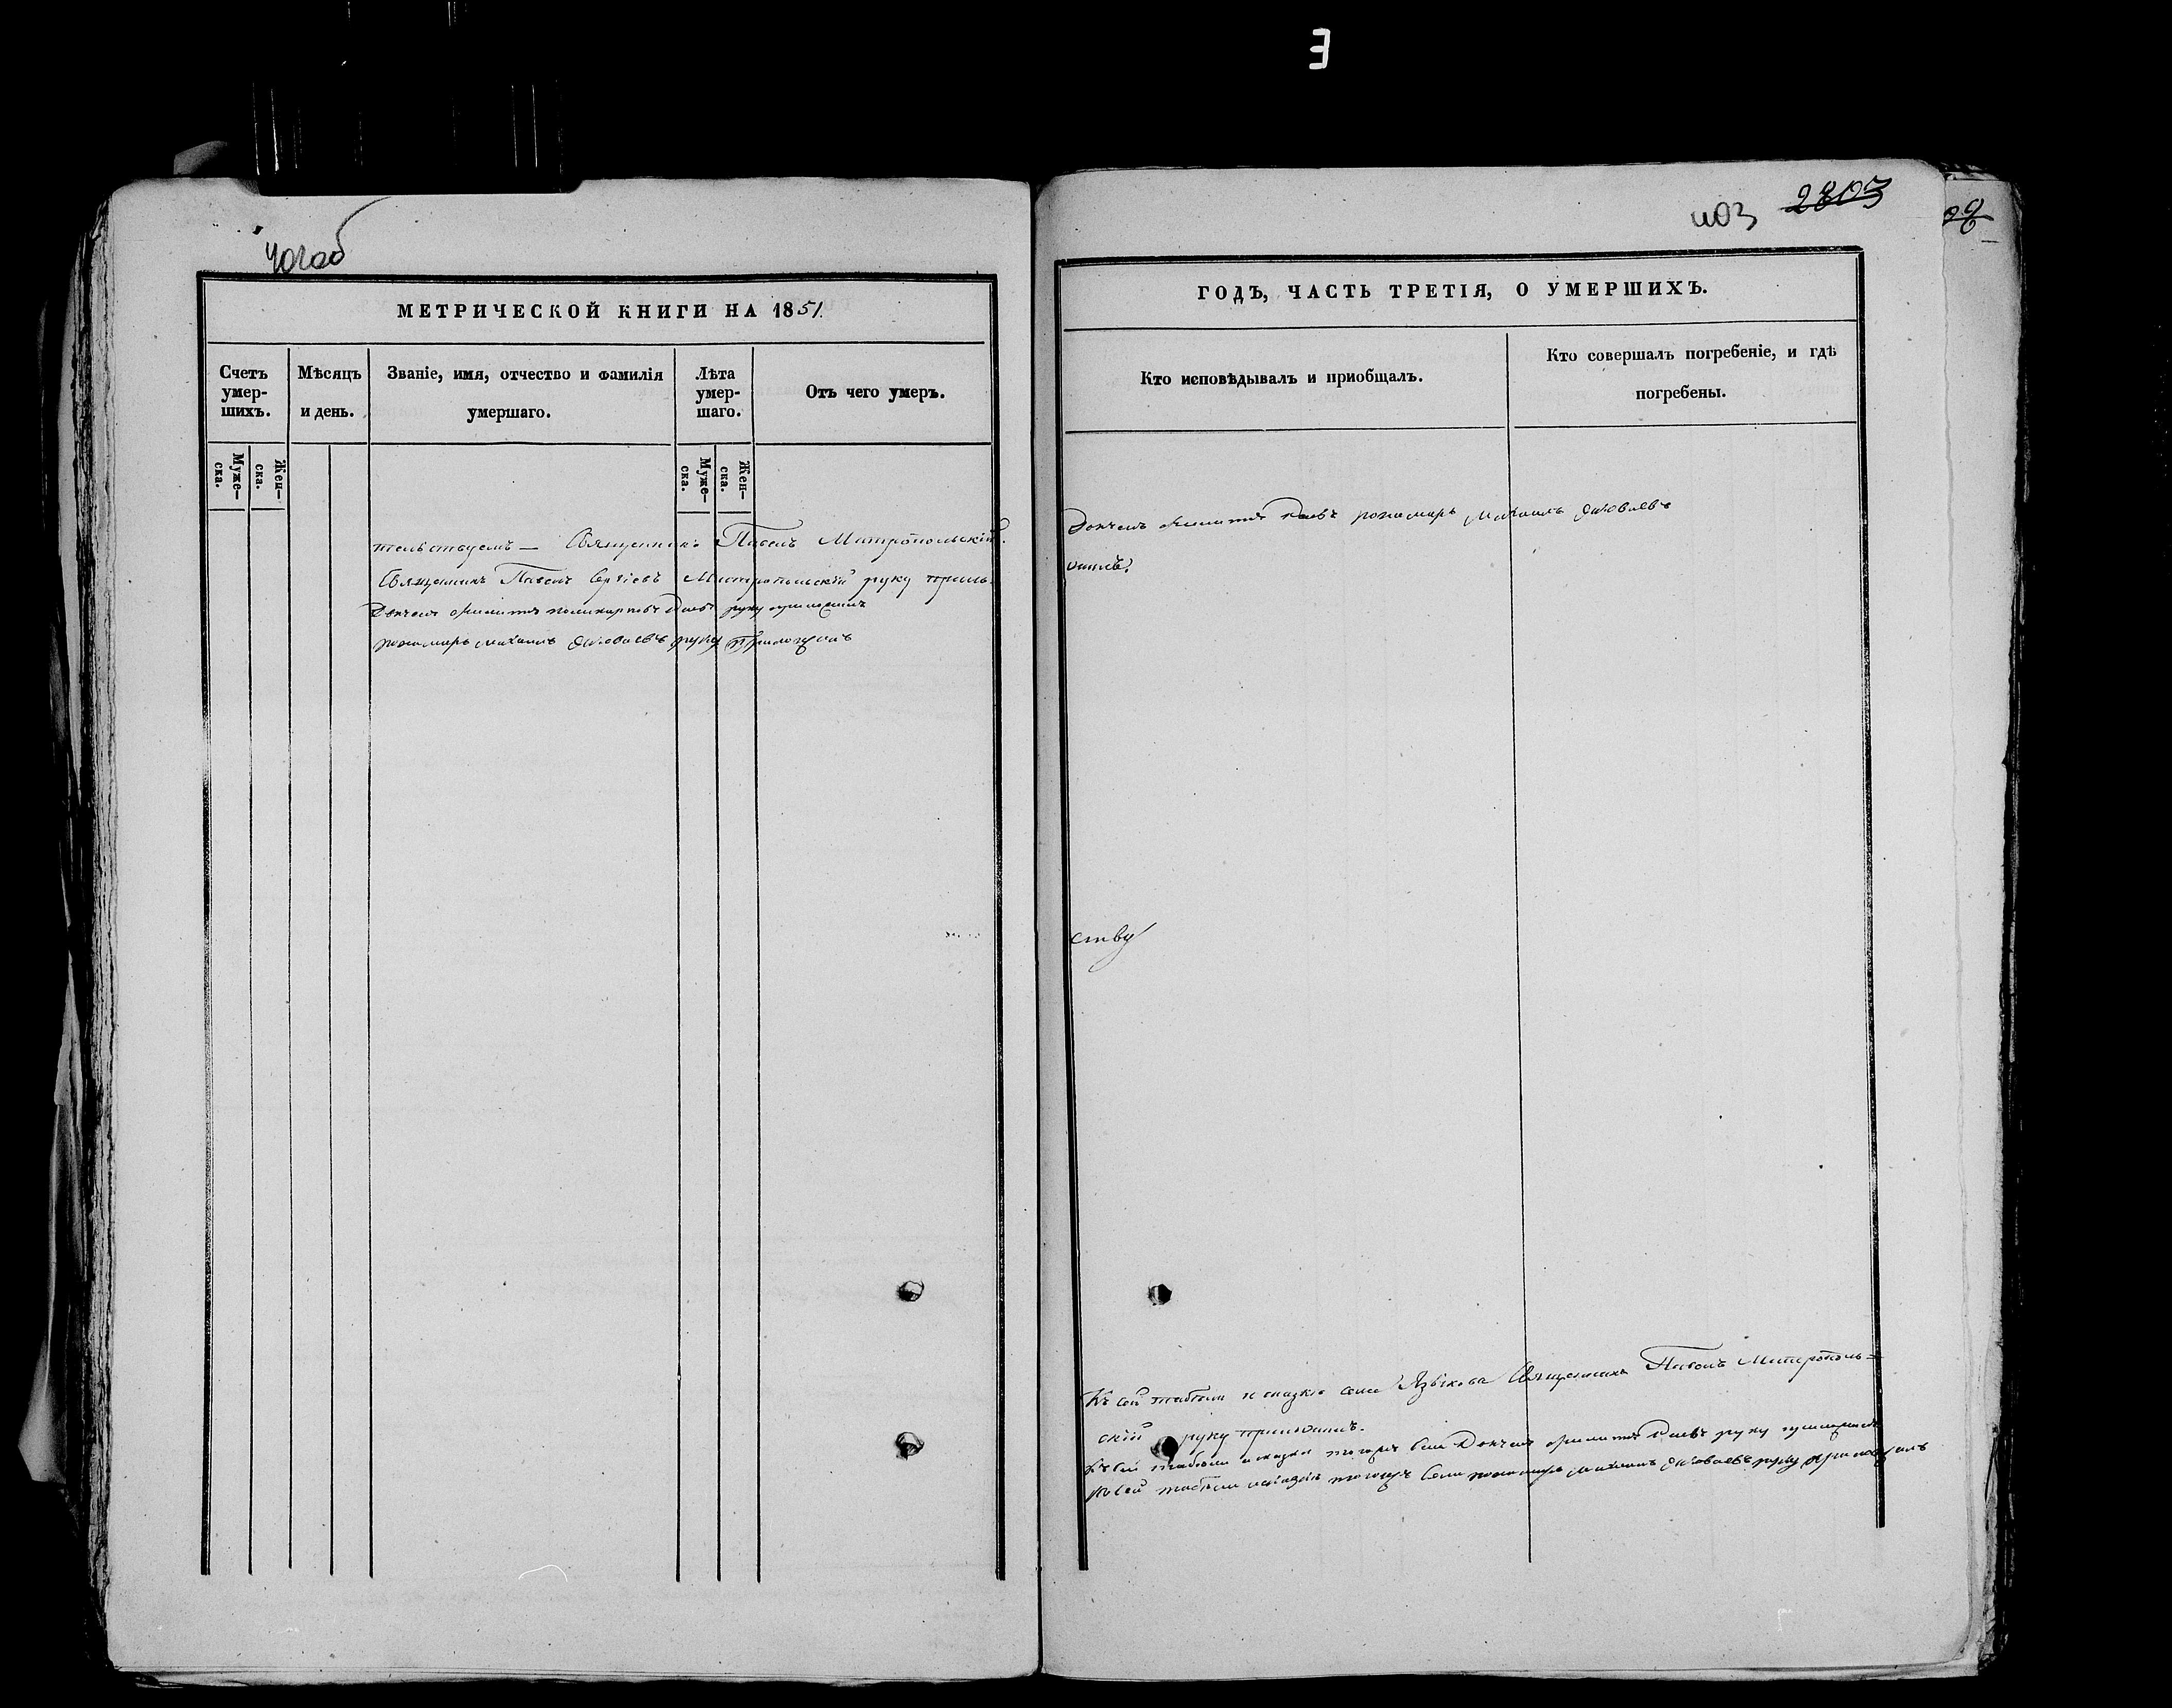 Е
402об
МЕТРИЧЕСКОЙ КНИГИ НА 1851.
Счетъ умер-шихъ.
Мѣсяцъ и день.
Званіе, имя, отчество и фамилія умершаго.
Лѣта умер-шаго.
Отъ чего умеръ.
Муже-ска.
Жен-ска.
Муже-ска.
Жен-ска.
тельствуемъ — Священникъ Павелъ Митропольскій.
Священникъ Павелъ Сергіевъ Митропольскій руку прило-
Дьячекъ руку приложилъ
пономарь михаилъ Яковлевъ руку Приложилъ
403 2803
ГОДЪ, ЧАСТЬ ТРЕТІЯ, О УМЕРШИХЪ.
Кто исповѣдывалъ и пріобщалъ.
Кто совершалъ погребеніе, и гдѣ погребены.
Дьячекъ пономарь Михаилъ Яковлевъ
жилъ.
ству
Къ сей сказкѣ села Языкова Священникъ Павелъ Митрополь-
скій руку приложилъ.
Къ сей и сказки тогожъ села Дьячекъ руку приложилъ
Къ сей тогожъ села пономарь михаилъ Яковлевъ руку приложилъ